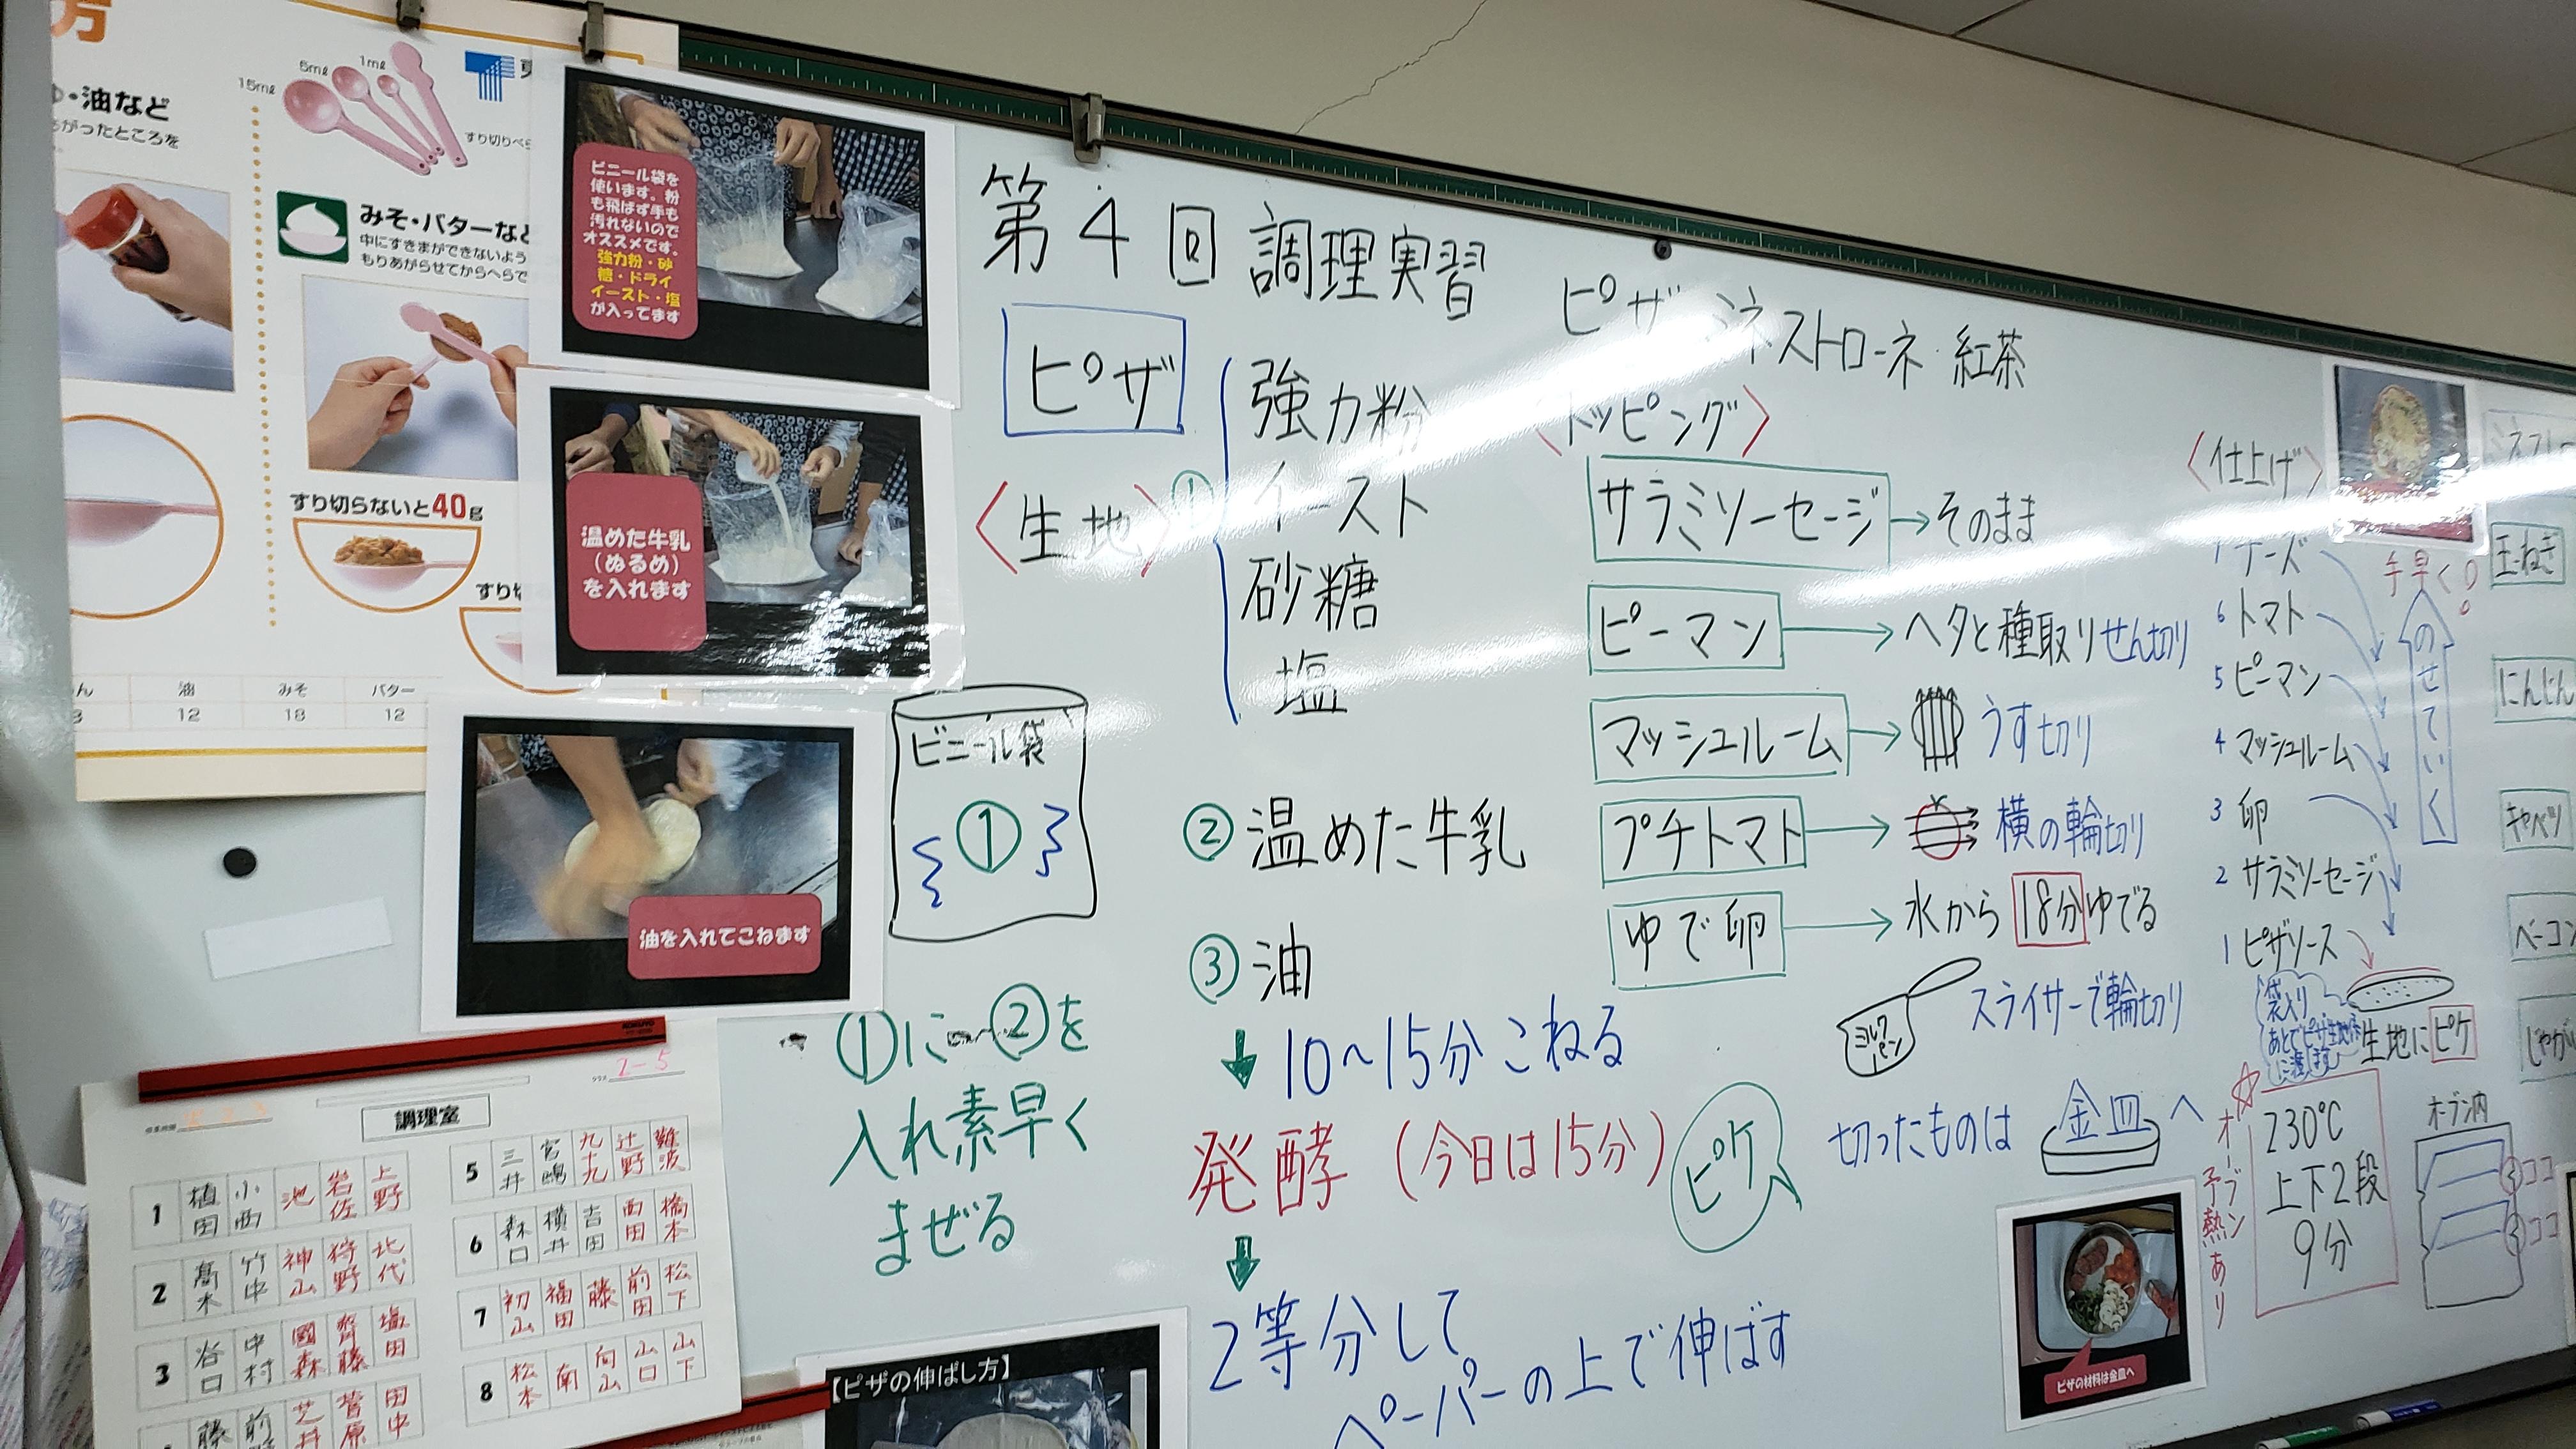 方
・油など
がったところを
15mℓ
5mℓ
1mℓ
すり切りべら
みそ・バターなど
中にすきまができないよう
もりあがらせてからへらで
すり切らないと40g
油
みそ
バター
12
18
12
ビニール袋を
使います。粉
も飛ばず手も
汚れないので
オススメです。
強力粉・砂
糖・ドライ
イースト・塩
が入ってます
温めた牛乳
(ぬるめ)
を入れます
油を入れてこねます
第4回 調理実習
ピザ・ミネストローネ・紅茶
ピザ
〈生地〉
①
強力粉
イースト
砂糖
塩
ビニール袋
①
②温めた牛乳
③油
10〜15分こねる
発酵(今日は15分)
2等分して
ペーパーの上で伸ばす
①に②を
入れ素早く
まぜる
ピケ
〈トッピング〉
サラミソーセージ→そのまま
ピーマン→ヘタと種取りせん切り
マッシュルーム→うす切り
プチトマト→横の輪切り
ゆで卵→水から18分ゆでる
ミルクパン
スライサーで輪切り
切ったものは金皿へ
ピザの材料は金皿へ
〈仕上げ〉
手早く
のせていく
7チーズ
6トマト
5ピーマン
4マッシュルーム
3卵
2サラミソーセージ
1ピザソース
袋入り
生地にピケ
オーブン
予熱あり
230℃
上下2段
9分
オーブン内
ココ
ココ
玉ねぎ
にんじん
キャベツ
ベーコン
調理室
クラス 2-5
1 植田 小西 池 岩佐 上野
2 髙木 竹中 神山 狩野 北代
3 谷口 中村 國森 齊藤 塩田
藤 前 芝井 菅原 田中
5 三井 宮嶋 九十九 辻野 難波
6 森口 横井 吉田 西田 橋本
7 初山 福田 藤 前田 松下
8 松本 南 向山 山口 山下
【ピザの伸ばし方】